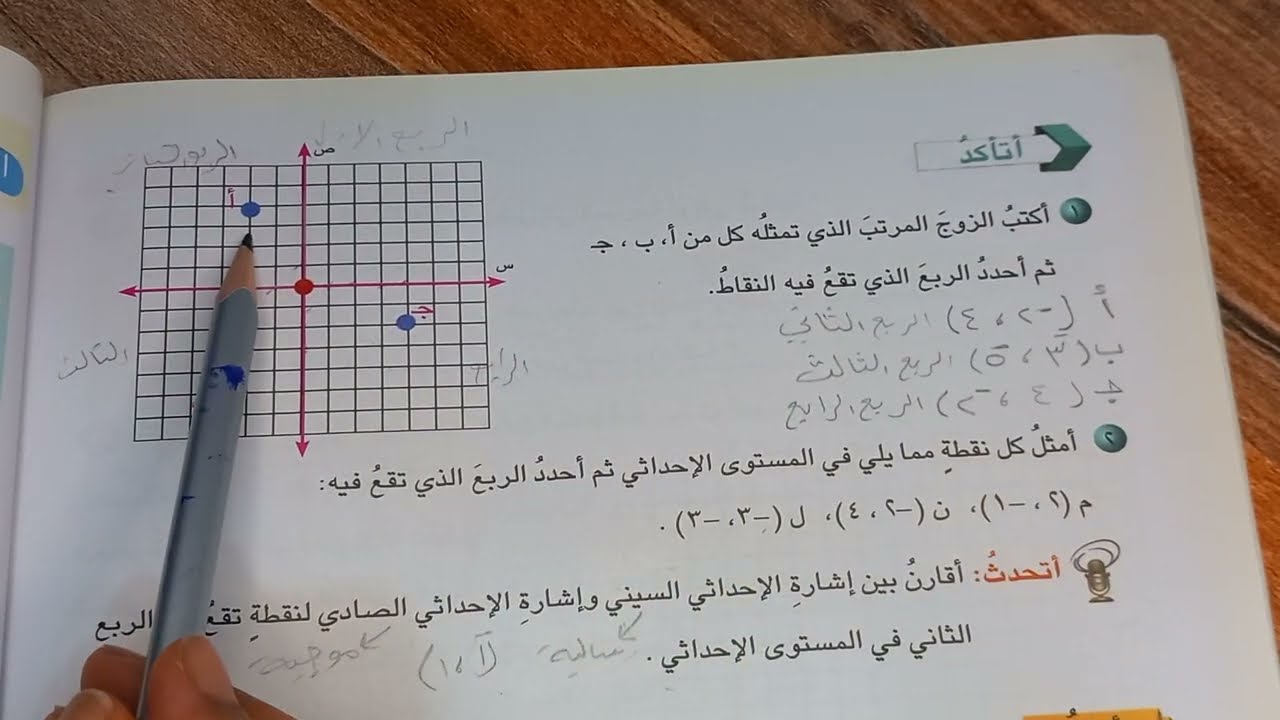 أتأكدُ
١ أكتبُ الزوجَ المرتبَ الذي تمثلُه كل من أ، ب ، جـ
ثم أحددُ الربعَ الذي تقعُ فيه النقاطُ.
أ (-٢ ، ٤) الربع الثاني
ب (-٣ ، -٥) الربع الثالث
جـ (٤ ، -٢) الربع الرابع
الربع الاول
ص
أ
س
جـ
الثالث
الرابع
٢ أمثلُ كل نقطةٍ مما يلي في المستوى الإحداثي ثم أحددُ الربعَ الذي تقعُ فيه:
م (٢، -١)، ن (-٢، ٤)، ل (-٣، -٣) .
أتحدثُ: أقارنُ بين إشارةِ الإحداثي السيني وإشارةِ الإحداثي الصادي لنقطةٍ تقعُ الربع
الثاني في المستوى الإحداثي .
سالبة (-١،١) موجبة